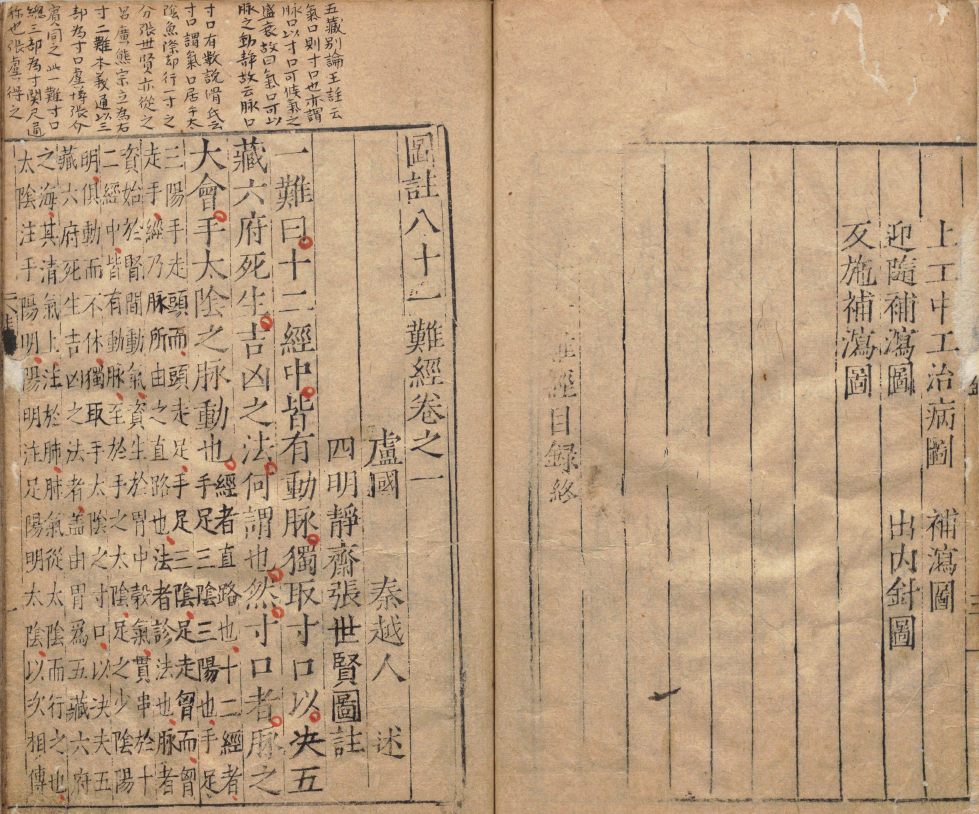 上工中工治病圖 補瀉圖
迎隨補瀉圖 出內針圖
反施補瀉圖
難經目録終
五藏别論王註云
氣口則寸口也亦謂
脉口以寸口可候氣之
盛衰故曰氣口可以
脉之動静故云脉口
寸口有數說滑氏云
寸口謂氣口居手太
陰魚際却行一寸之
分張世賢亦從之
呂廣熊宗立為右
寸二難本義通以三
部為寸口虞 張介
賓同之此一難寸口
總三部為寸関尺通
称也張虞得之
圖註八十一難經卷之一
盧國 秦越人 述
四明靜齋張世賢圖註
一難曰十二經中皆有動脉獨取寸口以决五
藏六府死生吉凶之法何謂也然寸口者脉之
大會手太陰之脉動也
經者直路也十二經者
手足三陰三陽也手足
三陽手走頭而頭走足手足三陰足走胷而胷
走手經乃脉所由之直路也法者診法也脉者
資始於腎間動氣資生於胃中穀氣貫串於十
二經中皆有動脉至於手之太陰足之少陰陽
明俱動而不休獨取手太陰之寸口以决夫五
藏六府死生吉凶之法者盖由胃爲五藏六府
之海其清氣上注於肺肺氣從太陰而行之也
太陰注手陽明陽明注足陽明太陰以次相傳